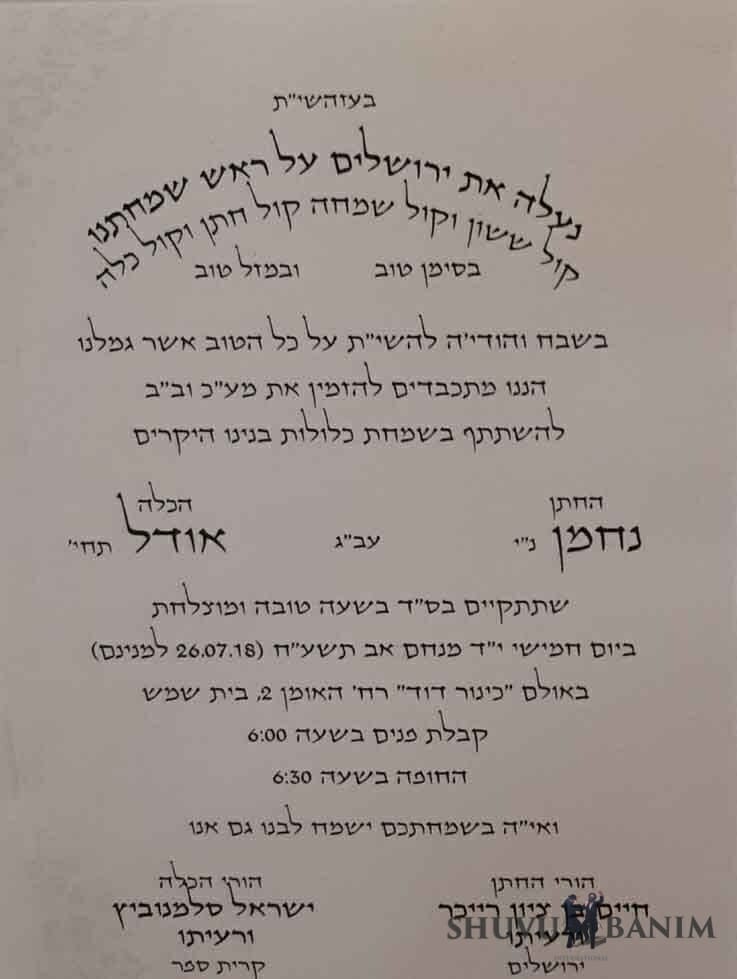 בעזהשי"ת
נעלה את ירושלים על ראש שמחתנו
קול ששון וקול שמחה קול חתן וקול כלה
בסימן טוב ובמזל טוב
בשבח והודי'ה להשי"ת על כל הטוב אשר גמלנו
הננו מתכבדים להזמין את מע"כ וב"ב
להשתתף בשמחת כלולות בנינו היקרים
החתן הכלה
נחמן ני' עב"ג אודל תחי'
שתתקיים בס"ד בשעה טובה ומוצלחת
ביום חמישי י"ד מנחם אב תשע"ח (26.07.18 למנינם)
באולם "כינור דוד" רח' האומן 2, בית שמש
קבלת פנים בשעה 6:00
החופה בשעה 6:30
ואי"ה בשמחתכם ישמח לבנו גם אנו
הורי החתן הורי הכלה
חיים בן ציון רייכר ישראל סלמנוביץ
ורעיתו ורעיתו
ירושלים קרית ספר
SHUVU BANIM
INTERNATIONAL